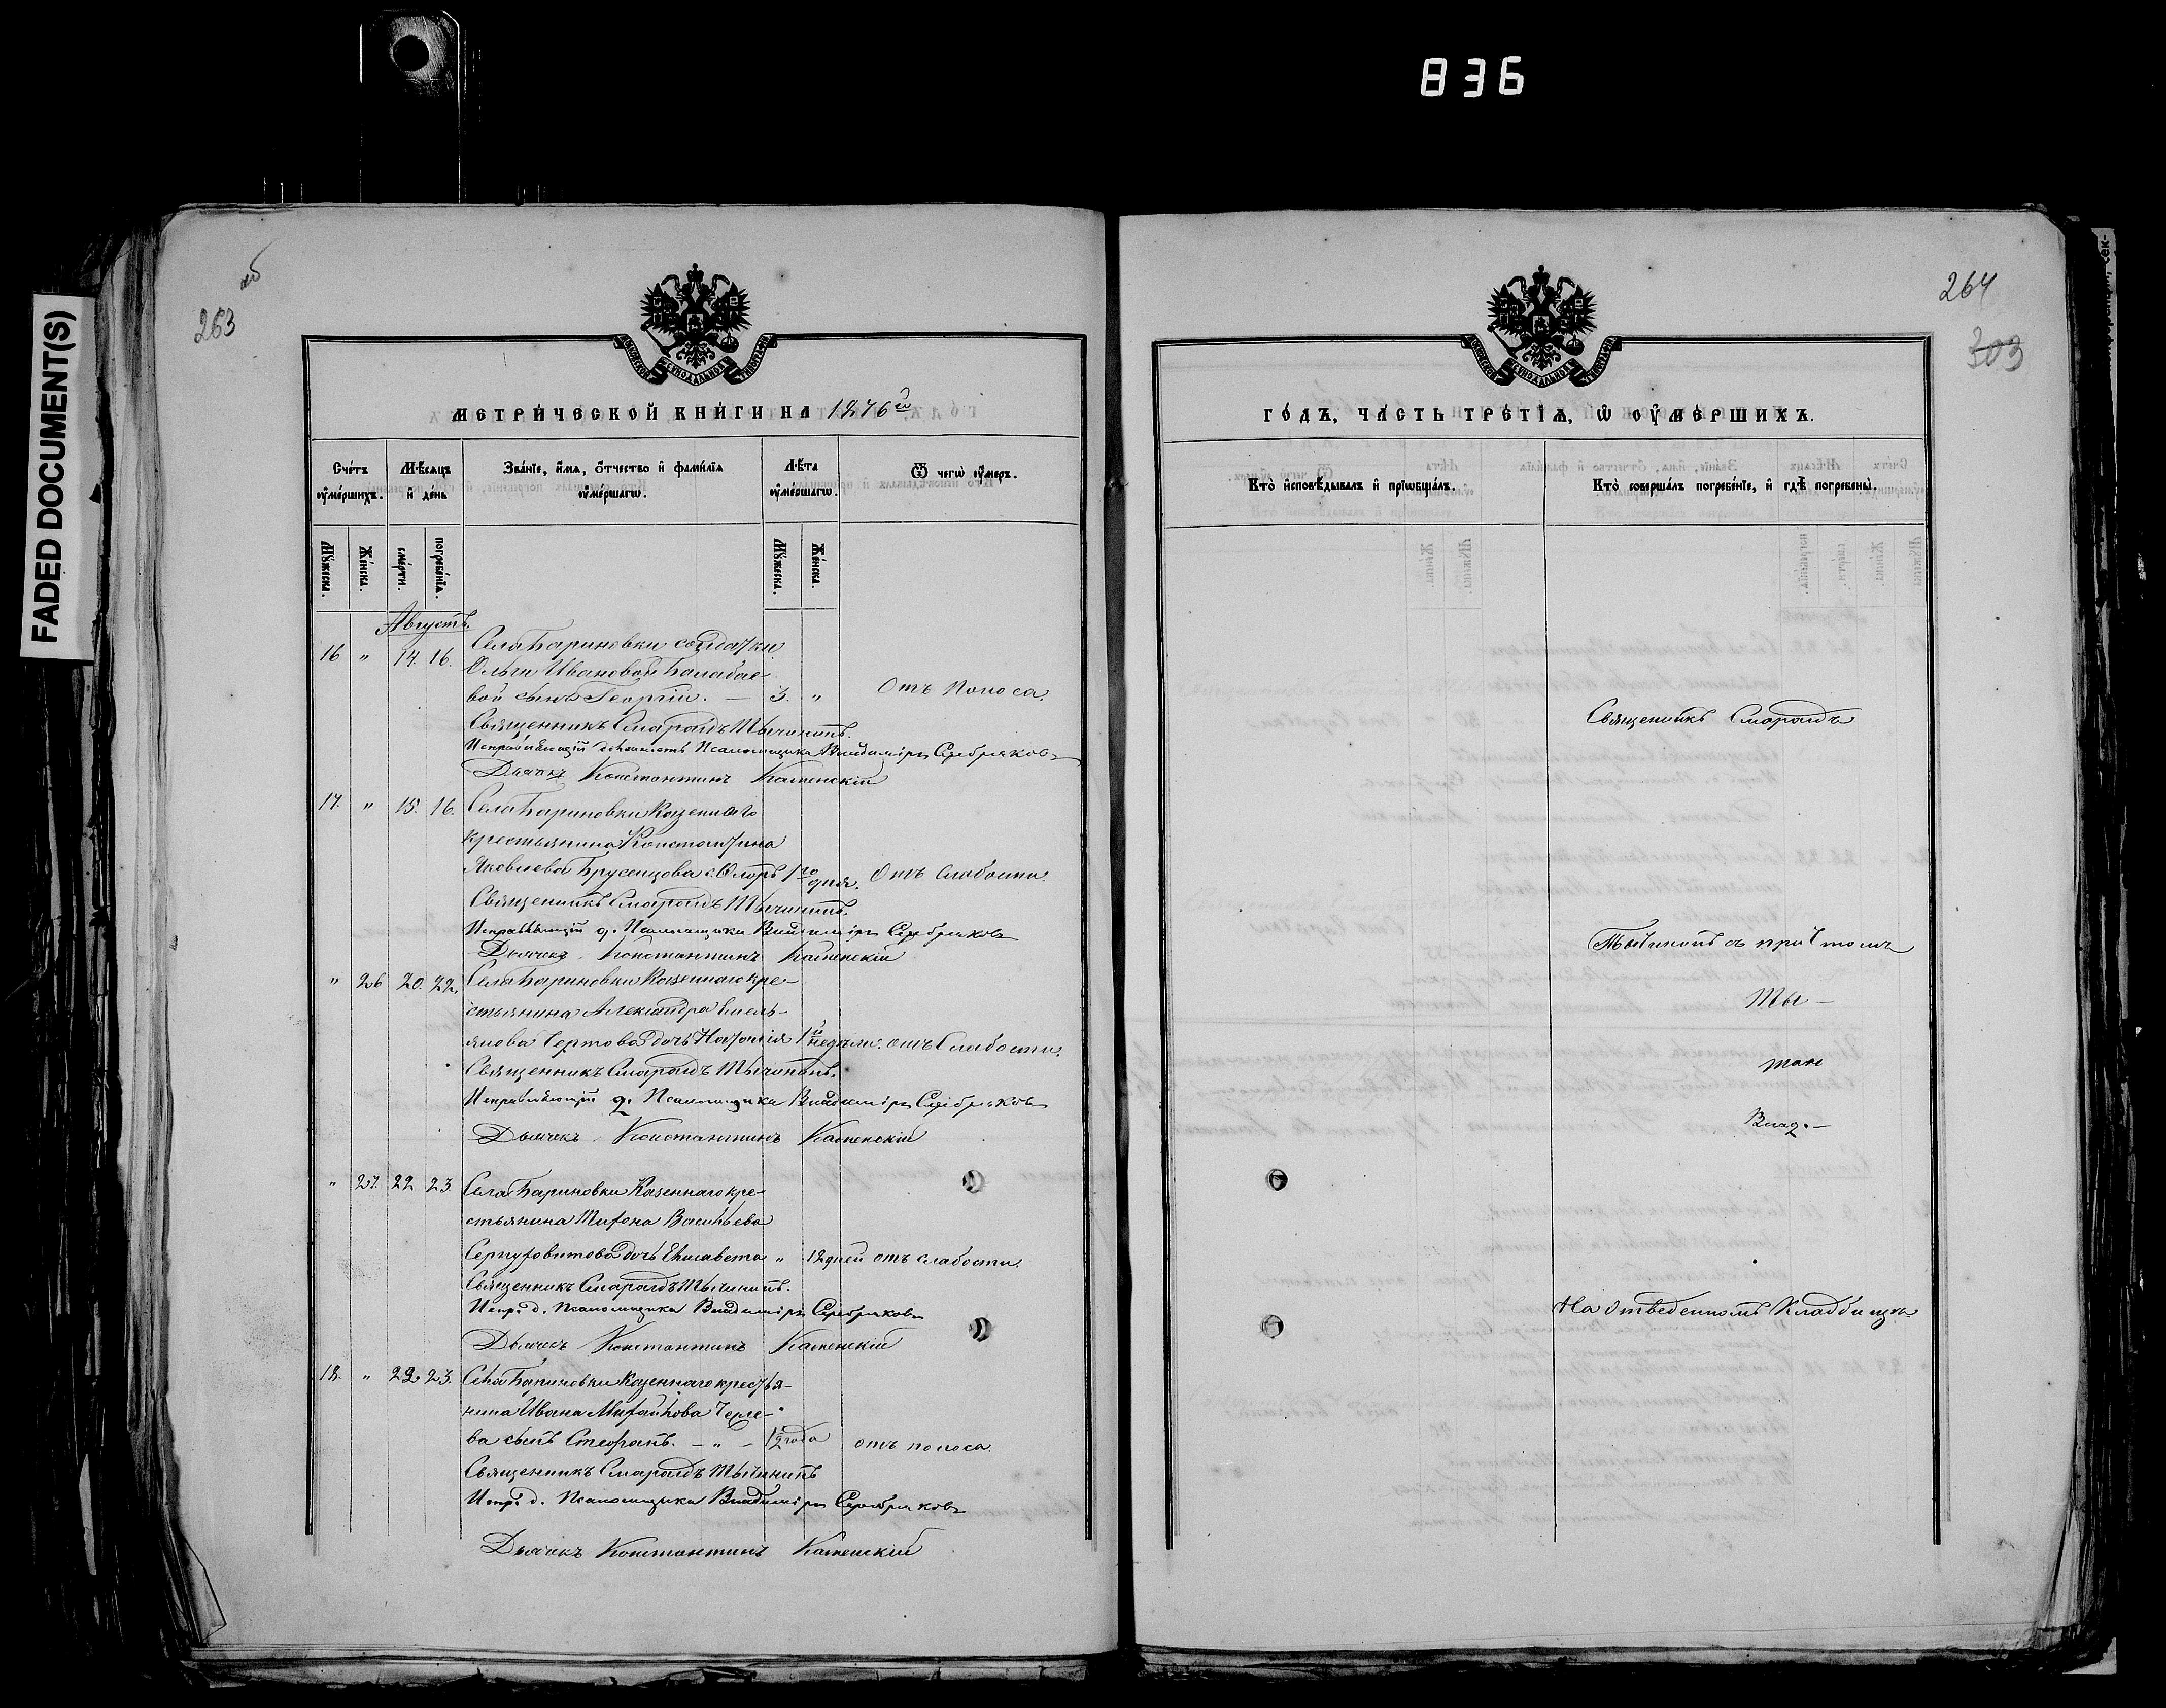 836
FADED DOCUMENT(S)
об
263
МЕТРИЧЕСКОЙ КНИГИ НА 1876 й
Счетъ оумершихъ.
Мѣсяцъ и день
Званіе, имя, отчество и фамилія оумершагω.
Лѣта оумершагω.
Ѿ чегω оумеръ.
Мужеска.
Женска.
смерти.
погребенія.
Мужеска.
Женска.
Августъ.
16 " 14. 16. Села Бариновки солдатки
Ольги Ивановой Балабае-
вой сынъ Георгій. — 3. " Отъ поноса.
Священникъ Смарагдъ Тычининъ.
Исправляющій должность Псаломщика Владиміръ Серебряковъ
Дьячекъ Константинъ Каменскій
17. " 15. 16. Села Бариновки Казеннаго
крестьянина Константина
Яковлева Брусенцова с. Флоръ 1го дня. Отъ слабости.
Священникъ Смарагдъ Тычининъ.
Исправляющій д. Псаломщика Владиміръ Серебряковъ
Дьячекъ Константинъ Каменскій
" 26 20. 22. Села Бариновки Казеннаго кре-
стьянина Александра Емель-
янова Чертова дочь Наталія 1й недѣли. отъ Слабости.
Священникъ Смарагдъ Тычининъ.
Исправляющій д. Псаломщика Владиміръ Серебряковъ
Дьячекъ Константинъ Каменскій
" 27. 22 23 Села Бариновки Казеннаго кре-
стьянина Тихона Васильева
дочь Елисавета " 12 дней отъ слабости.
Священникъ Смарагдъ Тычининъ.
Испр. д. Псаломщика Владиміръ Серебряковъ
Дьячекъ Константинъ Каменскій
18. " 22. 23. Села Бариновки Казеннаго крестья-
нина Ивана Михайлова
ва сынъ Стефанъ. — " — года отъ поноса.
Священникъ Смарагдъ Тычининъ
Испр. д. Псаломщика Владиміръ Серебряковъ
Дьячекъ Константинъ Каменскій
264
303
ГОДЪ, ЧАСТЬ ТРЕТІЯ, Ѡ ОУМЕРШИХЪ.
Кто исповѣдывалъ и пріωбщалъ.
Кто совершалъ погребеніе, и гдѣ погребены.
Священникъ Смарагдъ
Тычининъ съ причтомъ
На отведенномъ Кладбищѣ